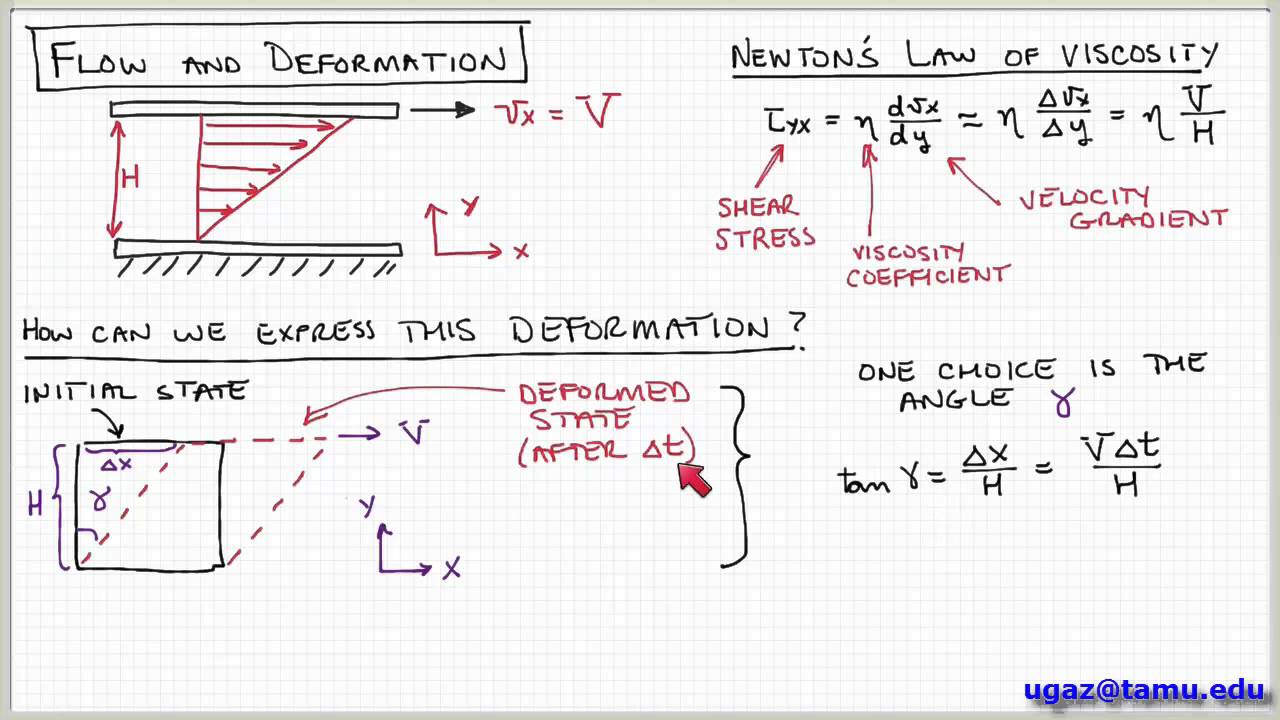 FLOW AND DEFORMATION
vx = V
H
y
x
NEWTON'S LAW OF VISCOSITY
τyx = η dvx/dy ≈ η Δvx/Δy = η V/H
SHEAR
STRESS
VISCOSITY
COEFFICIENT
VELOCITY
GRADIENT
HOW CAN WE EXPRESS THIS DEFORMATION?
INITIAL STATE
DEFORMED
STATE
(AFTER Δt)
V
Δx
H
γ
y
x
ONE CHOICE IS THE
ANGLE γ
tan γ = Δx/H = VΔt/H
ugaz@tamu.edu